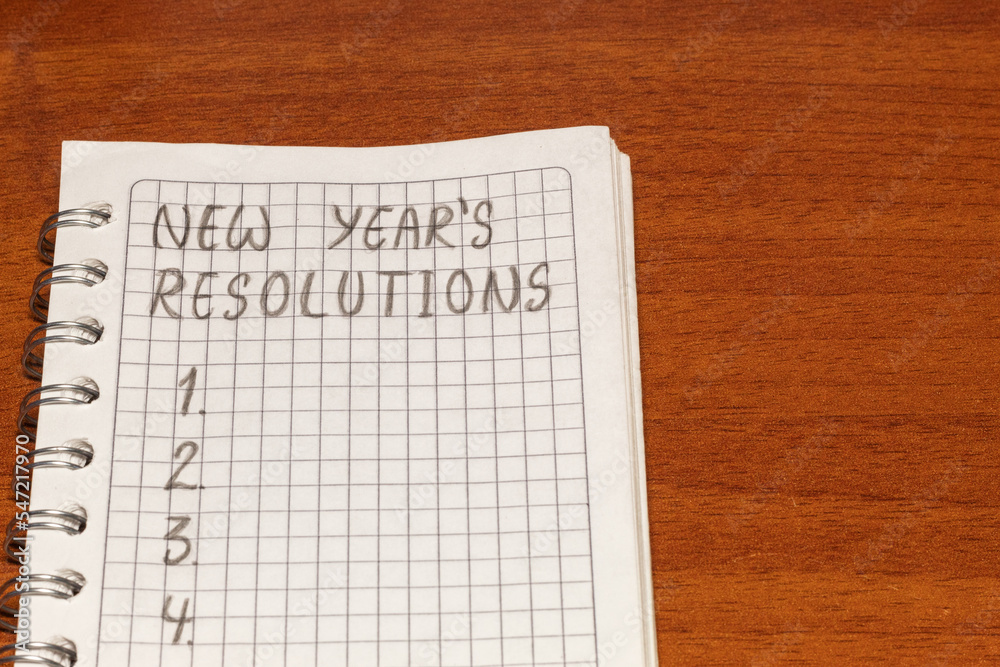 NEW YEAR'S
RESOLUTIONS
1.
2.
3.
4.
Adobe Stock | 547217970